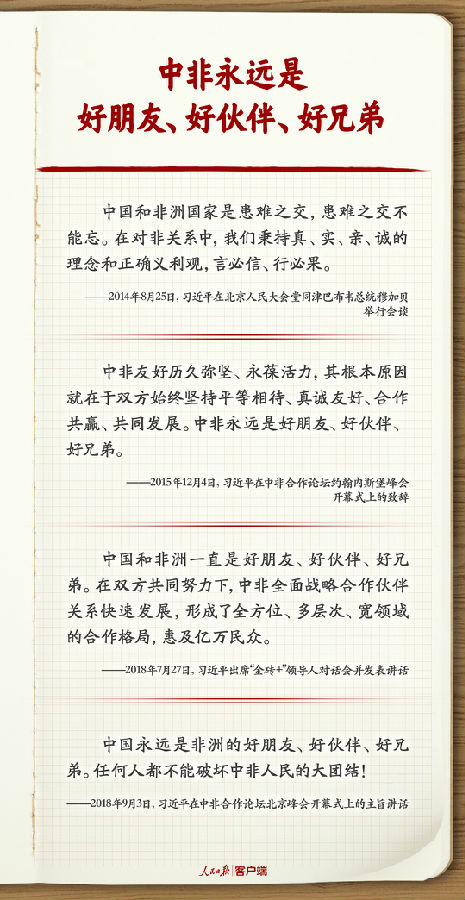 中非永远是
好朋友、好伙伴、好兄弟
中国和非洲国家是患难之交，患难之交不
能忘。在对非关系中，我们秉持真、实、亲、诚的
理念和正确义利观，言必信、行必果。
——2014年8月25日，习近平在北京人民大会堂同津巴布韦总统穆加贝
举行会谈
中非友好历久弥坚、永葆活力，其根本原因
就在于双方始终坚持平等相待、真诚友好、合作
共赢、共同发展。中非永远是好朋友、好伙伴、
好兄弟。
——2015年12月4日，习近平在中非合作论坛约翰内斯堡峰会
开幕式上的致辞
中国和非洲一直是好朋友、好伙伴、好兄
弟。在双方共同努力下，中非全面战略合作伙伴
关系快速发展，形成了全方位、多层次、宽领域
的合作格局，惠及亿万民众。
——2018年7月27日，习近平出席“金砖+”领导人对话会并发表讲话
中国永远是非洲的好朋友、好伙伴、好兄
弟。任何人都不能破坏中非人民的大团结！
——2018年9月3日，习近平在中非合作论坛北京峰会开幕式上的主旨讲话
人民日报 客户端